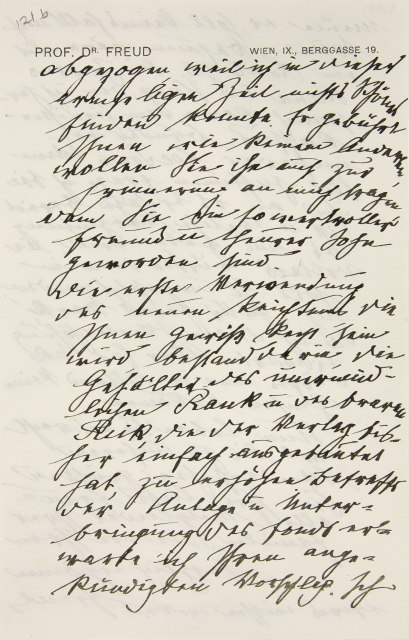 121 b
PROF. DR. FREUD WIEN, IX., BERGGASSE 19.
abgezogen weil ich in dieser
armseligen Zeit nichts Schönes
finden konnte. Er gebührt
Ihnen wie keinem Anderen
wollen Sie ihn auch zur
Erinnerung an mich tragen
dem Sie ein so wertvoller
Freund u teurer Sohn
geworden sind
die erste Verwendung
des neuen Reichtums die
Ihnen gewiß recht sein
wird bestand darin die
Gehälter des unermüd-
lichen Rank u des braven
Reik die der Verlag bis-
her einfach ausgebeutet
hat zu erhöhen Betreffs
der Anlage u Unter-
bringung des Fonds er-
warte ich Ihren ange-
kündigten Vorschlag. Ich